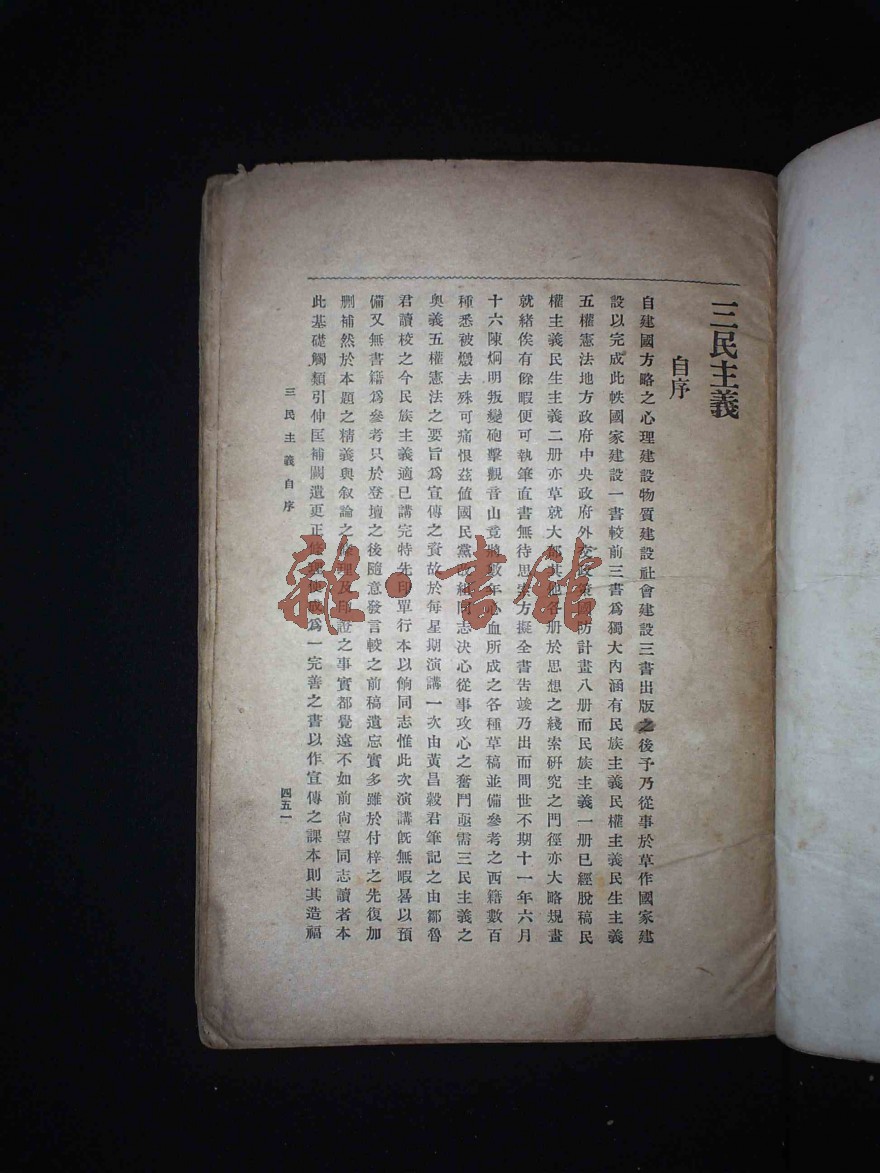 三民主義
自序
自建國方略之心理建設物質建設社會建設三書出版之後予乃從事於草作國家建
設以完成此帙國家建設一書較前三書爲獨大內涵有民族主義民權主義民生主義
五權憲法地方政府中央政府外交政策國防計畫八册而民族主義一册已經脫稿民
權主義民生主義二册亦草就大部其他各册於思想之綫索硏究之門徑亦大略規畫
就緒俟有餘暇便可執筆直書無待思索方擬全書告竣乃出而問世不期十一年六月
十六陳炯明叛變砲擊觀音山竟將數年心血所成之各種草稿並備參考之西籍數百
種悉被燬去殊可痛恨茲值國民黨改組同志决心從事攻心之奮鬥亟需三民主義之
奥義五權憲法之要旨爲宣傳之資故於每星期演講一次由黃昌穀君筆記之由鄒魯
君讀校之今民族主義適已講完特先印單行本以餉同志惟此次演講旣無暇晷以預
備又無書籍爲參考只於登壇之後隨意發言較之前稿遺忘實多雖於付梓之先復加
删補然於本題之精義與叙論之條理及印證之事實都覺遠不如前尙望同志讀者本
此基礎觸類引伸匡補闕遺更正條理使成爲一完善之書以作宣傳之課本則其造福
三民主義自序
四五一
雜·書館